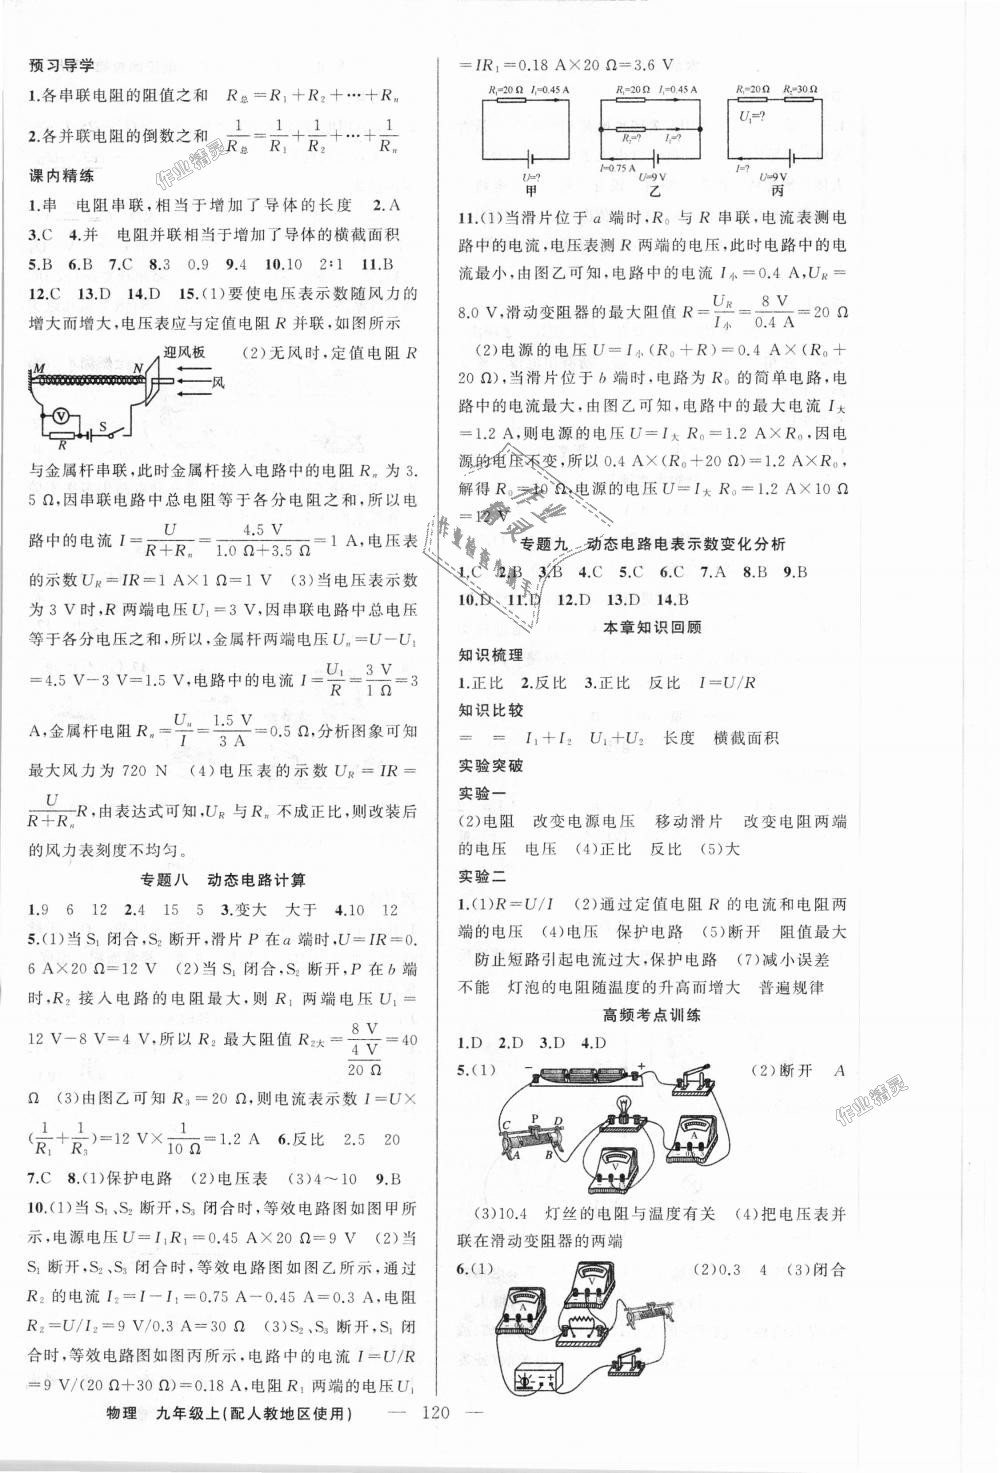 预习导学
1.各串联电阻的阻值之和 R总=R₁+R₂+…+Rₙ
2.各并联电阻的倒数之和 1/R总=1/R₁+1/R₂+…+1/Rₙ
课内精练
1.串 电阻串联,相当于增加了导体的长度 2.A
3.C 4.并 电阻并联相当于增加了导体的横截面积
5.B 6.B 7.C 8.3 0.9 9.4 10.10 2∶1 11.B
12.C 13.D 14.D 15.(1)要使电压表示数随风力的
增大而增大,电压表应与定值电阻 R 并联,如图所示
迎风板 (2)无风时,定值电阻 R
M N 风
V S
R
与金属杆串联,此时金属杆接入电路中的电阻 Rₙ 为 3.
5 Ω,因串联电路中总电阻等于各分电阻之和,所以电
路中的电流 I=U/(R+Rₙ)=4.5 V/(1.0 Ω+3.5 Ω)=1 A,电压表
的示数 U_R=IR=1 A×1 Ω=1 V (3)当电压表示数
为 3 V 时,R 两端电压 U₁=3 V,因串联电路中总电压
等于各分电压之和,所以,金属杆两端电压 Uₙ=U-U₁
=4.5 V-3 V=1.5 V,电路中的电流 I=U₁/R=3 V/1 Ω=3
A,金属杆电阻 Rₙ=Uₙ/I=1.5 V/3 A=0.5 Ω,分析图象可知
最大风力为 720 N (4)电压表的示数 U_R=IR=
U/(R+Rₙ)R,由表达式可知,U_R 与 Rₙ 不成正比,则改装后
的风力表刻度不均匀。
专题八 动态电路计算
1.9 6 12 2.4 15 5 3.变大 大于 4.10 12
5.(1)当 S₁ 闭合,S₂ 断开,滑片 P 在 a 端时,U=IR=0.
6 A×20 Ω=12 V (2)当 S₁ 闭合,S₂ 断开,P 在 b 端
时,R₂ 接入电路的电阻最大,则 R₁ 两端电压 U₁=
12 V-8 V=4 V,所以 R₂ 最大阻值 R₂大=8 V/(4 V/20 Ω)=40
Ω (3)由图乙可知 R₃=20 Ω,则电流表示数 I=U×
(1/R₁+1/R₃)=12 V×1/10 Ω=1.2 A 6.反比 2.5 20
7.C 8.(1)保护电路 (2)电压表 (3)4~10 9.B
10.(1)当 S₁、S₂ 断开,S₃ 闭合时,等效电路图如图甲所
示,电源电压 U=I₁R₁=0.45 A×20 Ω=9 V (2)当
S₁ 断开,S₂、S₃ 闭合时,等效电路图如图乙所示,通过
R₂ 的电流 I₂=I-I₁=0.75 A-0.45 A=0.3 A,电阻
R₂=U/I₂=9 V/0.3 A=30 Ω (3)S₂、S₃ 断开,S₁ 闭
合时,等效电路图如图丙所示,电路中的电流 I=U/R
=9 V/(20 Ω+30 Ω)=0.18 A,电阻 R₁ 两端的电压 U₁
=IR₁=0.18 A×20 Ω=3.6 V
R₁=20 Ω I₁=0.45 A
U=?
甲
R₁=20 Ω I₁=0.45 A
R₂=? I₂=?
I=0.75 A
U=9 V
乙
R₁=20 Ω R₂=30 Ω
U₁=?
I=?
U=9 V
丙
11.(1)当滑片位于 a 端时,R₀ 与 R 串联,电流表测电
路中的电流,电压表测 R 两端的电压,此时电路中的电
流最小,由图乙可知,电路中的电流 I小=0.4 A,U_R=
8.0 V,滑动变阻器的最大阻值 R=U_R/I小=8 V/0.4 A=20 Ω
(2)电源的电压 U=I小(R₀+R)=0.4 A×(R₀+
20 Ω),当滑片位于 b 端时,电路为 R₀ 的简单电路,电
路中的电流最大,由图乙可知,电路中的最大电流 I大
=1.2 A,则电源的电压 U=I大 R₀=1.2 A×R₀,因电
源的电压不变,所以 0.4 A×(R₀+20 Ω)=1.2 A×R₀,
解得 R₀=10 Ω,电源的电压 U=I大 R₀=1.2 A×10 Ω
=12 V
专题九 动态电路电表示数变化分析
1.C 2.B 3.B 4.C 5.C 6.C 7.A 8.B 9.B
10.D 11.D 12.D 13.D 14.B
本章知识回顾
知识梳理
1.正比 2.反比 3.正比 反比 I=U/R
知识比较
= = I₁+I₂ U₁+U₂ 长度 横截面积
实验突破
实验一
(2)电阻 改变电源电压 移动滑片 改变电阻两端
的电压 电压 (4)正比 反比 (5)大
实验二
1.(1)R=U/I (2)通过定值电阻 R 的电流和电阻两
端的电压 (4)电压 保护电路 (5)断开 阻值最大
防止短路引起电流过大,保护电路 (7)减小误差
不能 灯泡的电阻随温度的升高而增大 普遍规律
高频考点训练
1.D 2.D 3.D 4.D
5.(1) (2)断开 A
- +
C P D
A B
V A
(3)10.4 灯丝的电阻与温度有关 (4)把电压表并
联在滑动变阻器的两端
6.(1) (2)0.3 4 (3)闭合
A V
物理 九年级上(配人教地区使用) — 120 —
作业精灵
作业精灵
作业
精灵
作业检查小助手